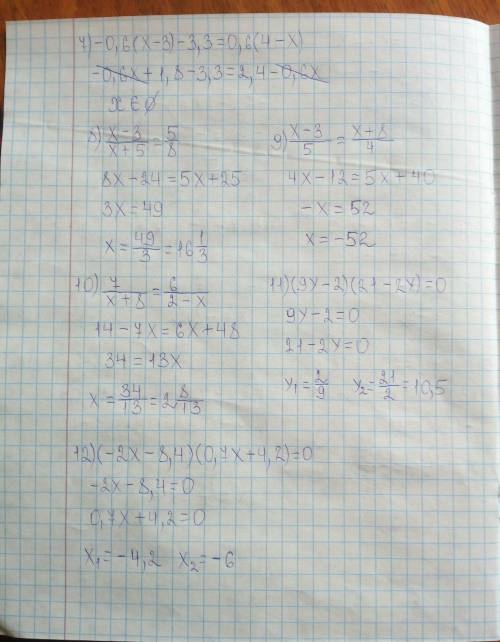 7) -0,6(x-3)-3,3=0,6(4-x)
-0,6x+1,8-3,3=2,4-0,6x
x∈∅
8) (x-3)/(x+5)=5/8
8x-24=5x+25
3x=49
x=49/3=16 1/3
9) (x-3)/5=(x+8)/4
4x-12=5x+40
-x=52
x=-52
10) 7/(x+8)=6/(2-x)
14-7x=6x+48
34=13x
x=34/13=2 8/13
11) (9x-2)(21-2x)=0
9x-2=0
21-2x=0
x₁=2/9 x₂=21/2=10,5
12) (-2x-8,4)(0,7x+4,2)=0
-2x-8,4=0
0,7x+4,2=0
x₁=-4,2 x₂=-6